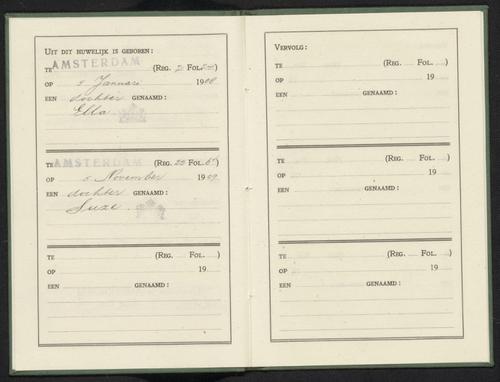 UIT DIT HUWELIJK IS GEBOREN:
TE AMSTERDAM (REG. 2 FOL. )
OP 5 Januari 1908
EEN dochter GENAAMD:
Ella.
TE AMSTERDAM (REG. 22 FOL. )
OP 5 November 1909
EEN dochter GENAAMD:
Suze.
TE (REG. FOL. )
OP 19
EEN GENAAMD:
VERVOLG:
TE (REG. FOL. )
OP 19
EEN GENAAMD:
TE (REG. FOL. )
OP 19
EEN GENAAMD:
TE (REG. FOL. )
OP 19
EEN GENAAMD: